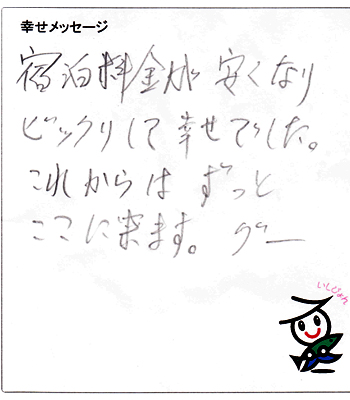 幸せメッセージ
宿泊料金が安くなり
ビックリして幸せでした。
これからはずっと
ここに来ます。グー
いしぴょん